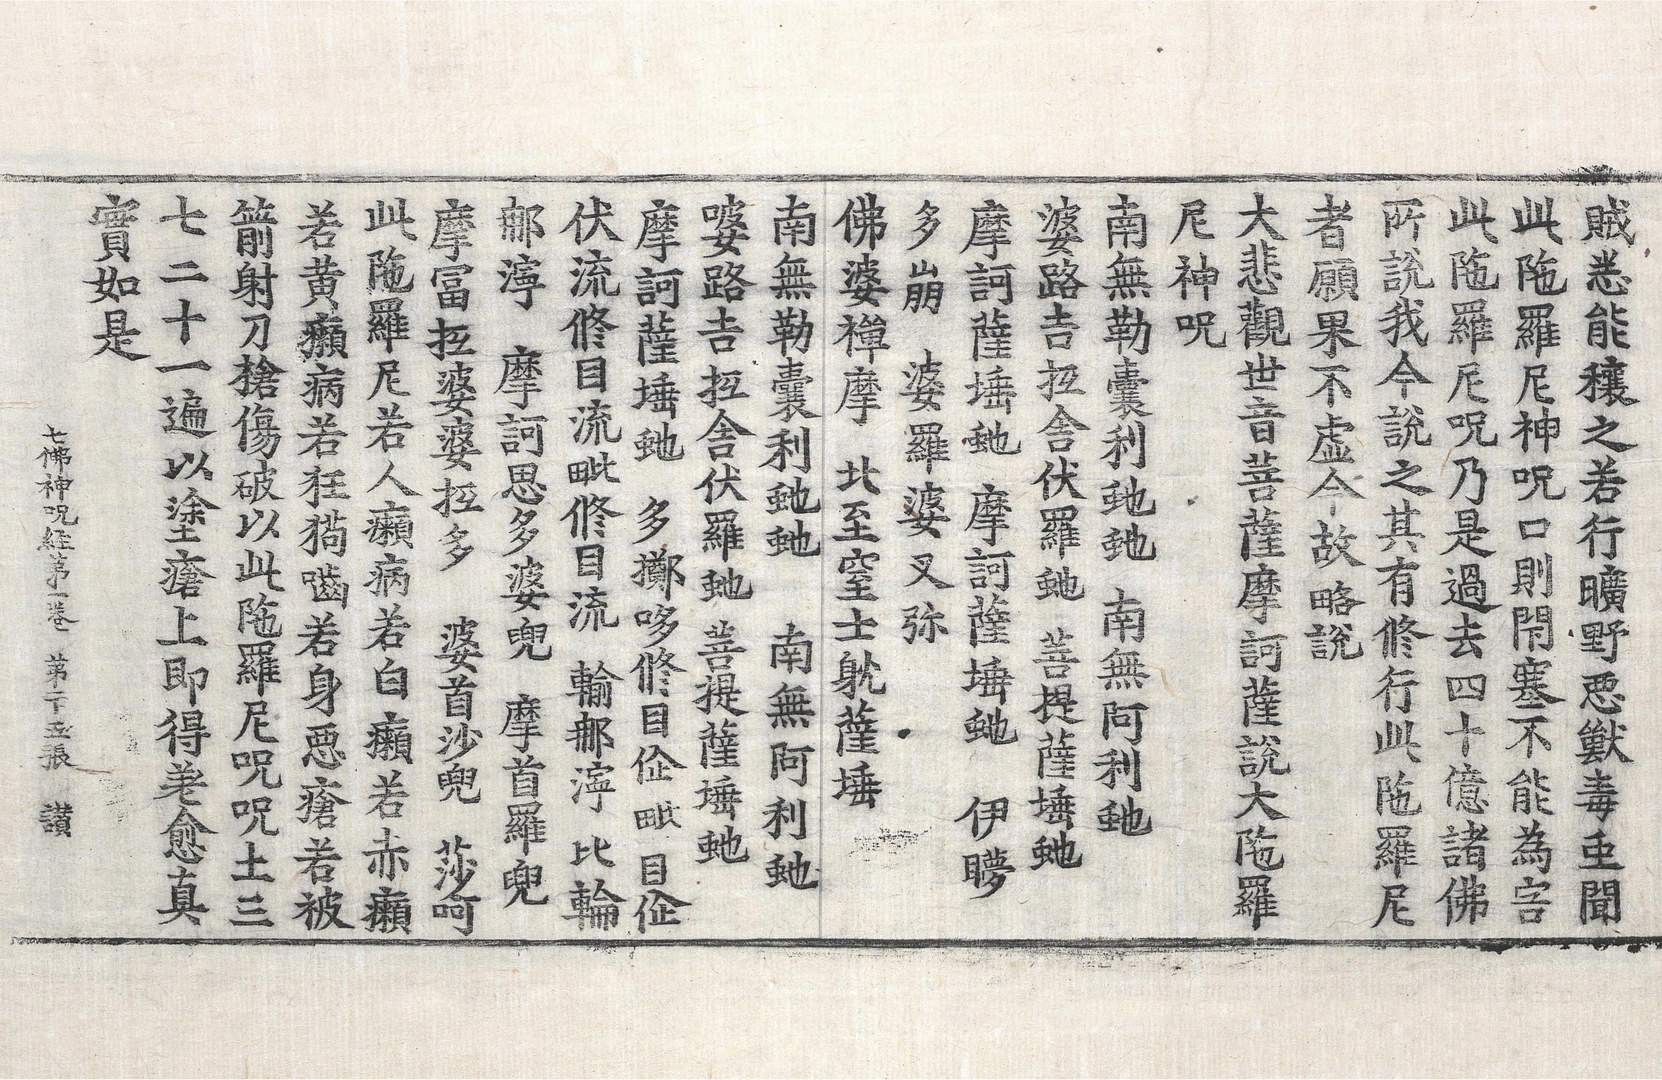 賊悉能穰之若行曠野惡獸毒虫聞
此陁羅尼神呪口則閇塞不能為害
此陁羅尼呪乃是過去四十億諸佛
所說我今說之其有修行此陁羅尼
者願果不虛今故略說
大悲觀世音菩薩摩訶薩說大陁羅
尼神呪
南無勒囊利虵虵　南無阿利虵
婆路吉抧舍伏羅虵　菩提薩埵虵
摩訶薩埵虵　摩訶薩埵虵　伊矃
多崩　婆羅婆叉弥
佛婆襌摩　北至窒士躭薩埵
南無勒囊利虵虵　南無阿利虵
婆路吉抧舍伏羅虵　菩提薩埵虵
摩訶薩埵虵　多擲哆修目佉毗目佉
伏流修目流毗修目流　輸那濘　比輪
那濘　摩訶思多婆兜　摩首羅兜
摩冨抧婆婆抧多　婆首沙兜　莎呵
此陁羅尼若人癩病若白癩若赤癩
若黃癩病若狂猘嚙若身惡瘡若被
箭射刀槍傷破以此陁羅尼呪呪土三
七二十一遍以塗瘡上即得差愈真
實如是
七佛神呪經第一卷　第二十五張　讃